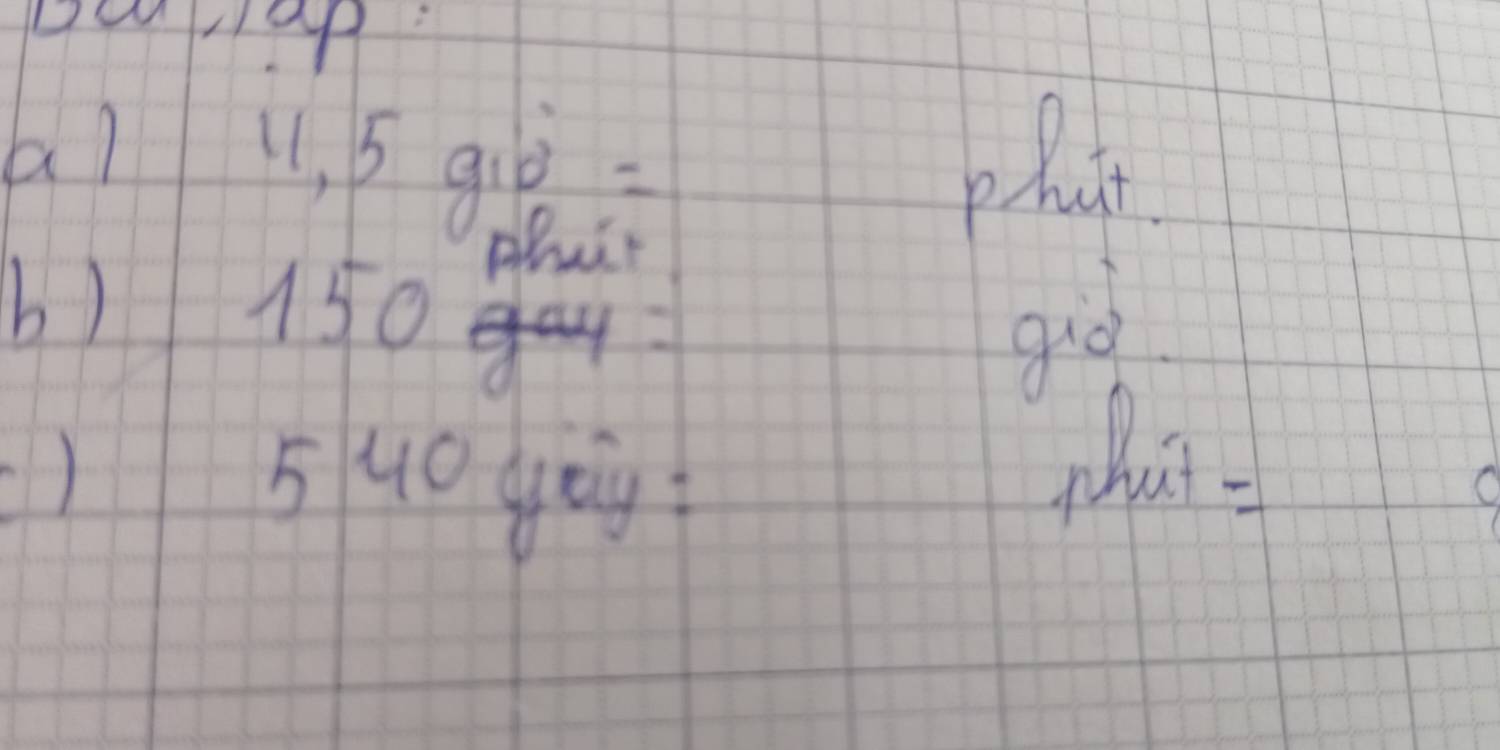 Bài tập :
a) 4,5 giờ = phút.
b) 150 phút = giờ.
c) 540 giây = phút =